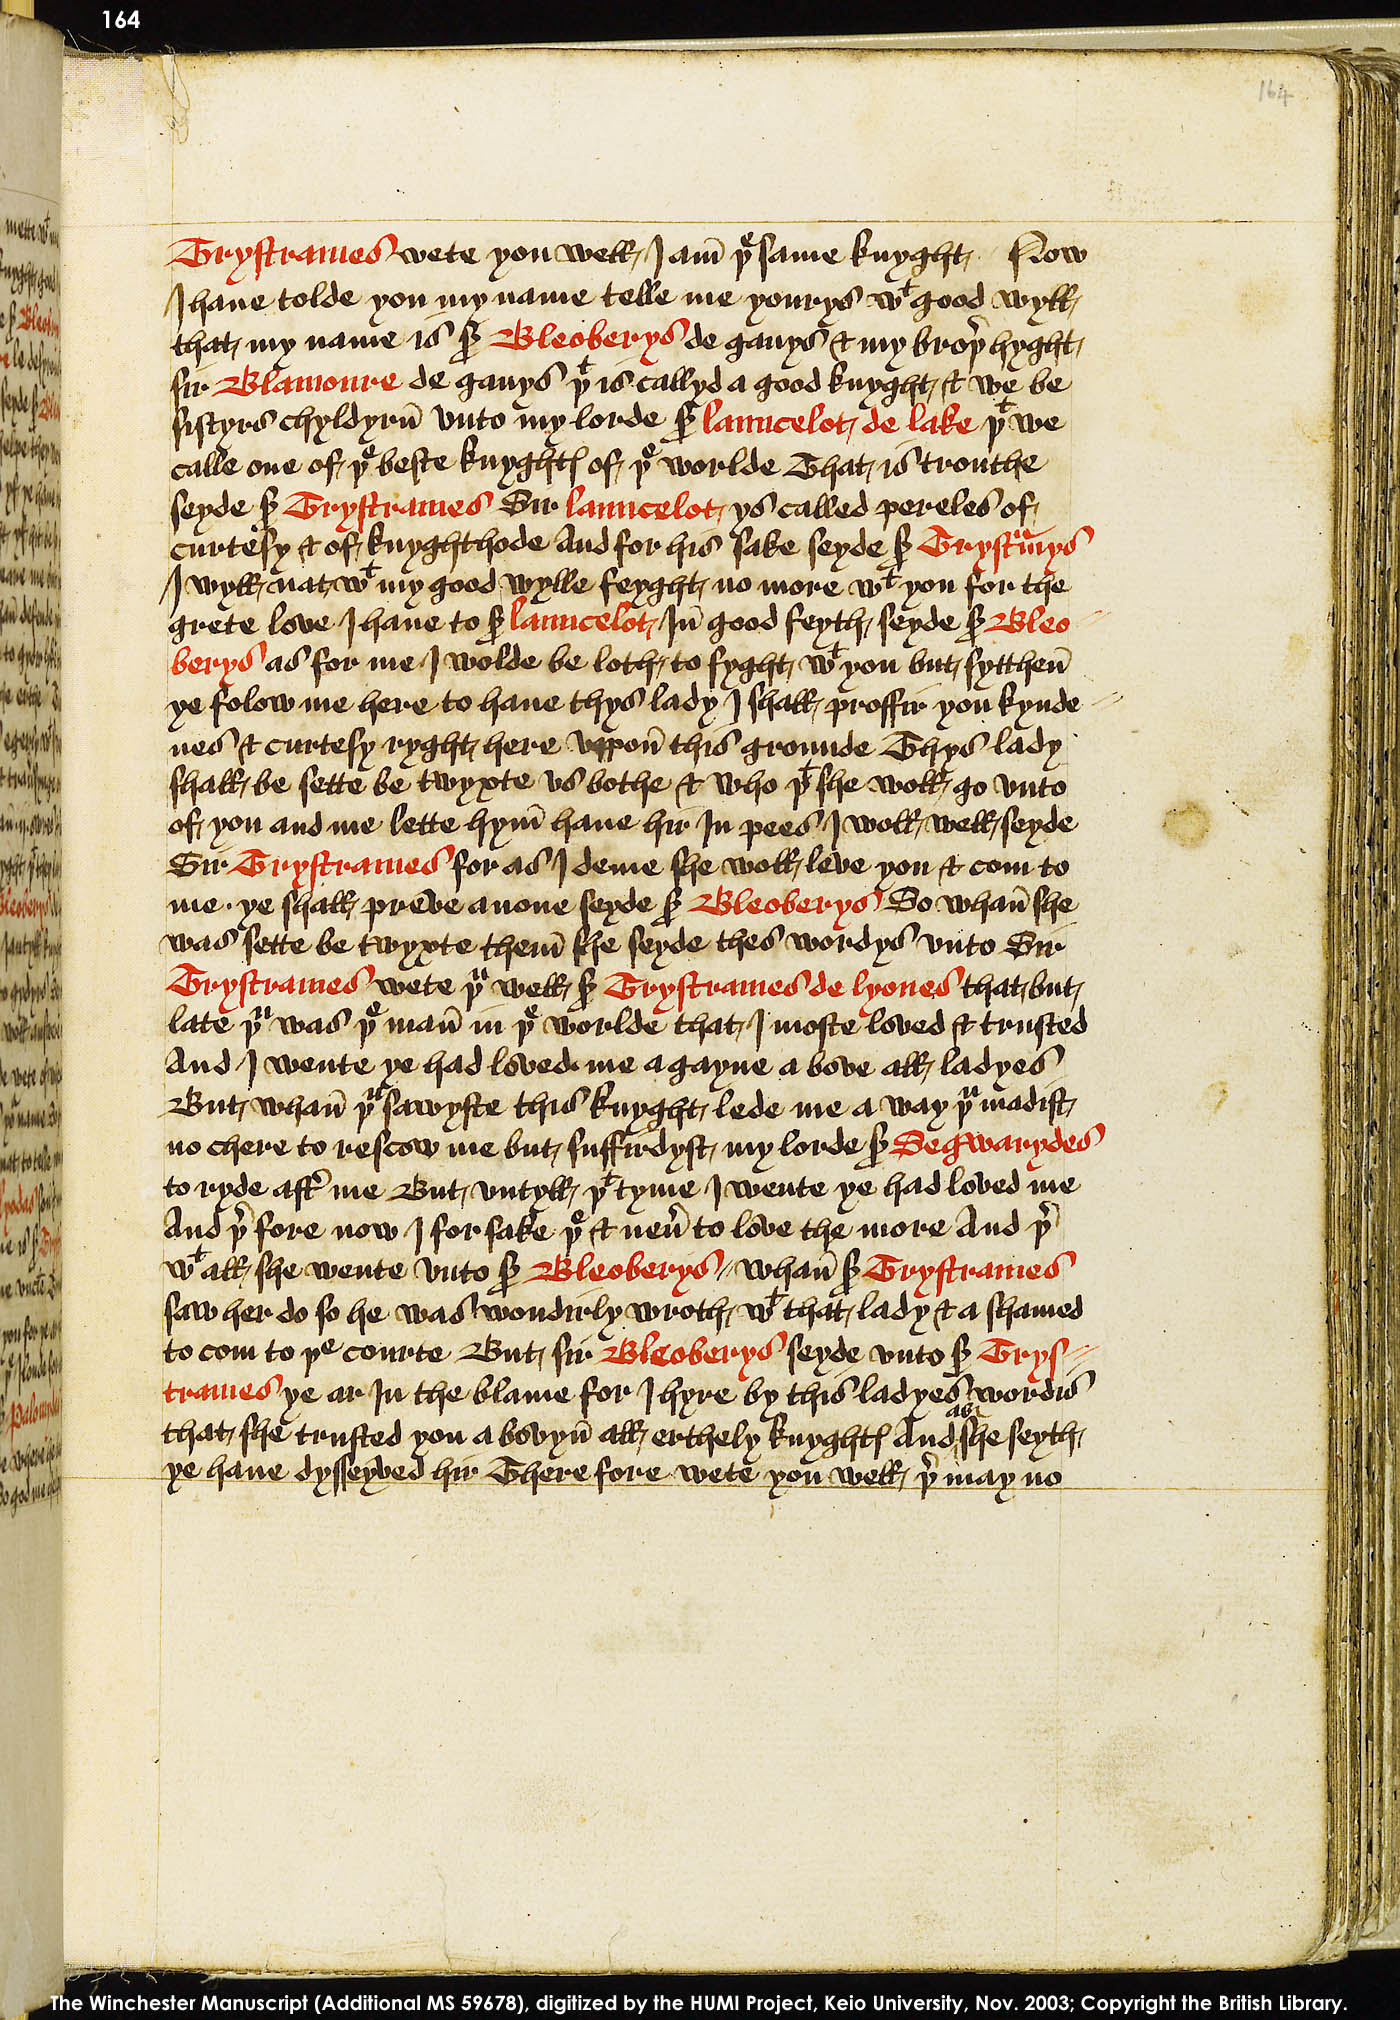 164
164
Trystrames wete you well I am þe same knyght Now
I haue tolde you my name telle me yourys wt good wyll
that my name is sir Bleoberys de ganys & my broþer hyght
sir Blamoure de ganys þt is callyd a good knyght & we be
sistyrs chyldyrn vnto my lorde sir launcelot de lake þt we
calle one of þe beste knyghtes of þe worlde That is trouthe
seyde sir Trystrames Sir launcelot ys called pereles of
curtesy & of knyghthode And for his sake seyde sir Trystramys
I wyll nat wt my good wylle feyght no more wt you for the
grete love I haue to sir launcelot In good feyth seyde sir Bleo
berys as for me I wolde be loth to fyght wt you but sytthen
ye folow me here to haue thys lady I shall proffir you kynde
nes & curtesy ryght here vppon this grounde Thys lady
shall be sette be twyxte vs bothe & who þt she woll go vnto
of you and me lette hym haue hir In pees I woll well seyde
Sir Trystrames for as I deme she woll leve you & com to
me . ye shall preve anone seyde sir Bleoberys So whan she
was sette be twyxte them she seyde thes wordys vnto Sir
Trystrames wete þu well sir Trystrames de lyones that but
late þu was þe man in þe worlde that I moste loved & trusted
And I wente ye had loved me agayne a bove all ladyes
But whan þu sawyste this knyght lede me a way þu madist
no chere to rescow me but suffirdyst my lorde sir Segwarydes
to ryde after me But vntyll þt tyme I wente ye had loved me
And þer fore now I for sake þe & never to love the more And þer
wt all she wente vnto sir Bleoberys whan sir Trystrames
saw her do so he was wondirly wroth wt that lady & a shamed
to com to þe courte But sir Bleoberys seyde vnto sir Trys
trames ye ar In the blame for I hyre by this ladyes wordis
that she trusted you a bovyn all erthely knyghtes And as she seyth
ye haue dysseyved hir There fore wete you well þer may no
The Winchester Manuscript (Additional MS 59678), digitized by the HUMI Project, Keio University, Nov. 2003; Copyright the British Library.